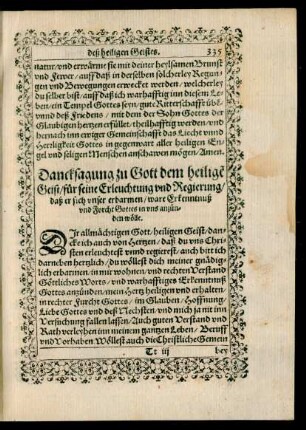 deß heiligen Geistes. 335
natur/ vnd erwärme sie mit deiner heylsamen Brunst
vnd Fewer / auff daß in derselben solcherley Regun-
gen vnd Bewegungen erwecket werden / wolcherley
du selber bist: auff daß ich warhafftig inn diesem Le-
ben / ein Tempel Gottes seyn / gute Ritterschafft
vnnd deß Friedens / mit dem der Sohn Gottes der
Glaubigen hertzen erfüllet / theilhafftig werden / vnd
hernach inn ewiger Gemeinschafft das Liecht vnnd
Herrligkeit Gottes in gegenwart aller heiligen En-
gel vnd seligen Menschen anschawen mögen/ Amen.
Dancksagung zu Gott dem heilige
Geist / für seine Erleuchtung vnd Regierung /
daß er sich vnser erbarmen / ware Erkenntnuß
vnd Forcht Gottes in vns anzün-
den wölle.
Dir allmächtigen Gott / heiliger Geist / dan-
cke ich auch von Hertzen / daß du vns Chri-
sten erleuchtest vnnd regierest / auch bitt ich
darneben hertzlich / du wöllest dich meiner gnädig-
lich erbarmen / in mir wohnen / vnd rechten Verstand
Göttliches Worts / vnd warhafftiges Erkenntnuß
Gottes anzünden / mein Hertz heiligen vnd erhalten
in rechter Furcht Gottes / im Glauben / Hoffnung /
Liebe Gottes vnd deß Nechsten / vnd mich ja nit inn
Versuchung fallen lassen / Auch guten Verstand vnd
Rath verleyhen inn meinem gantzen Leben / Beruff
vnd Vorhaben Wöllest auch die Christliche Gemein
iij bey